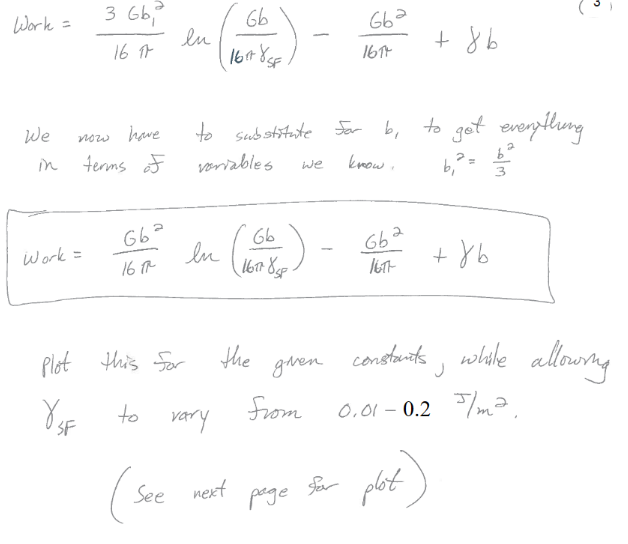 (3)
Work = 3 Gb₁² / 16 π ln ( Gb / 16π γ_SF ) − Gb² / 16π + γb
We now have to substitute for b₁ to get everything
in terms of variables we know. b₁² = b² / 3
Work = Gb² / 16 π ln ( Gb / 16π γ_SF ) − Gb² / 16π + γb
plot this for the given constants, while allowing
γ_SF to vary from 0.01 – 0.2 J/m².
(See next page for plot)